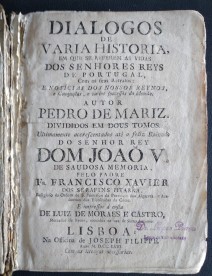 DIALOGOS
DE
VARIA HISTORIA,
EM QUE SE REFEREM AS VIDAS
DOS SENHORES REYS
DE PORTUGAL,
Com os seus Retratos;
E NOTICIAS DOS NOSSOS REYNOS,
e Conquistas, e varios successos do Mundo,
AUTOR
PEDRO DE MARIZ.
DIVIDIDOS EM DOUS TOMOS.
Ultimamente accrescentados até o felis Reinado
DO SENHOR REY
DOM JOAÕ V.
DE SAUDOSA MEMORIA,
PELO PADRE
Fr. FRANCISCO XAVIER
DOS SERAFINS PITARRA,
DE LUIZ DE MORAES E CASTRO,
LISBOA:
Na Officina de JOSEPH FILIPPE,
Com as licenças necessarias.